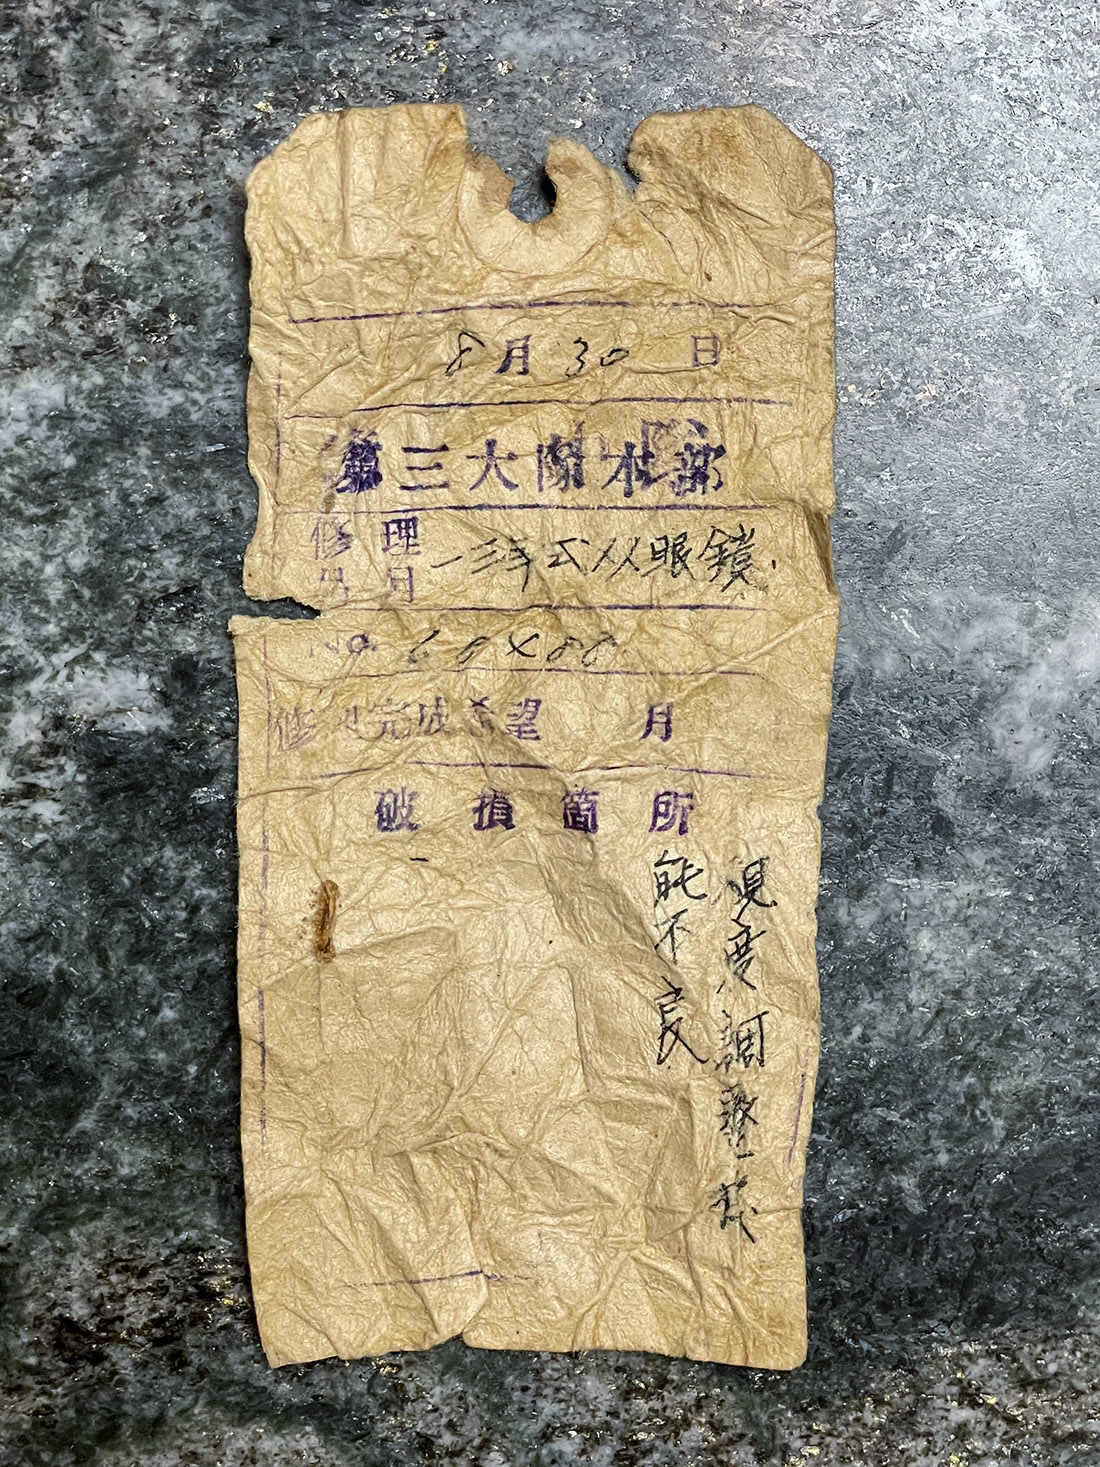 8月30日
第三大隊本部
修理
月 一三年式双眼鏡
No. 68×88
修理完成希望 月
破損箇所
視度調整
能不良